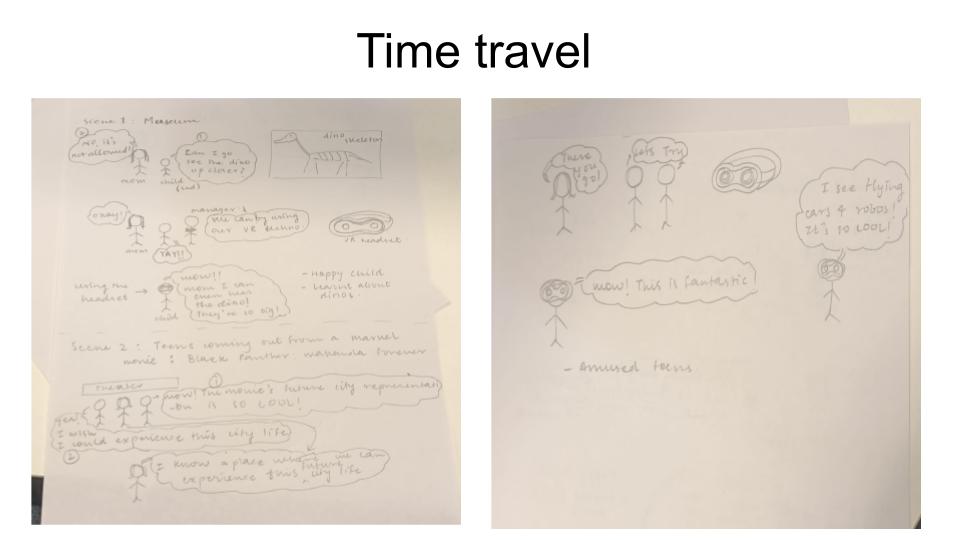 Time travel
Scene 1 : Museum
②
No, it's
not allowed!
mom
①
Can I go
see the dino
up closer?
child
(sad)
dino
skeleton
okay!
mom
YAY!!
manager :
We can by using
our VR techno
VR headset
using the
headset →
wow!!
mom I can
even hear
the dino!
They're so big!
child
- Happy child
- Learns about
dinos.
Scene 2 : Teens coming out from a marvel
movie : Black Panther: Wakanda forever
Theater
①
wow! The movie's future city representati
-on is SO COOL!
yes!
I wish
I could experience this city life
②
I know a place where we can
experience this future city life
There
you
go!
Lets Try
I see flying
cars & robos!
It's so COOL!
wow! This is fantastic!
- Amused teens